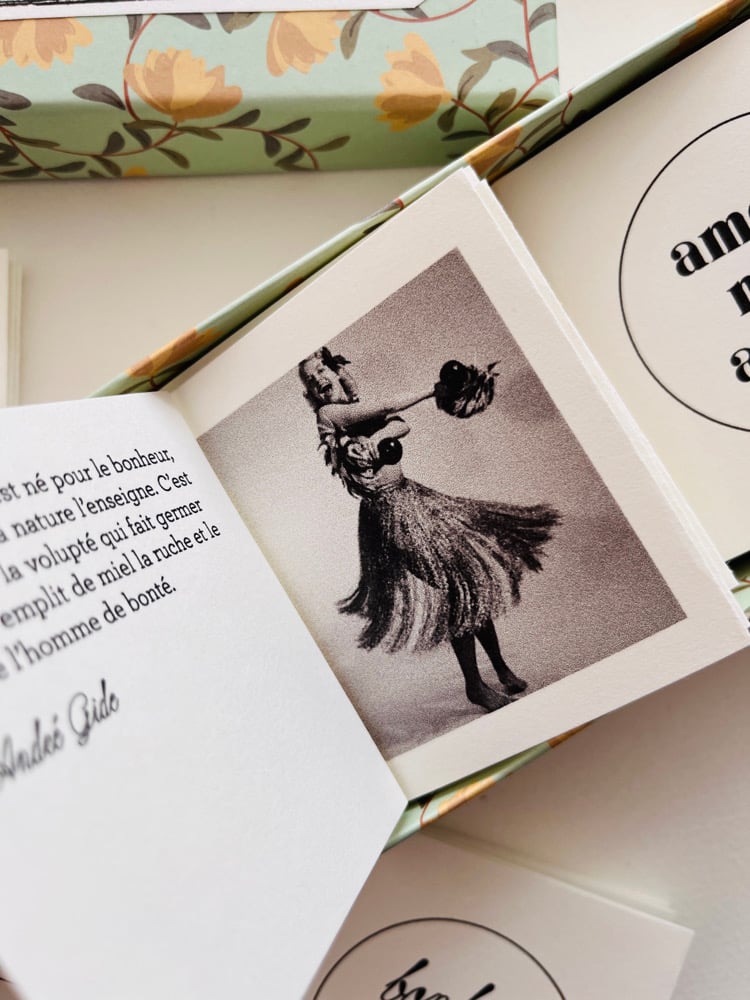 st né pour le bonheur,
nature l'enseigne. C'est
la volupté qui fait germer
emplit de miel la ruche et le
l'homme de bonté.
Andeé Gide
am